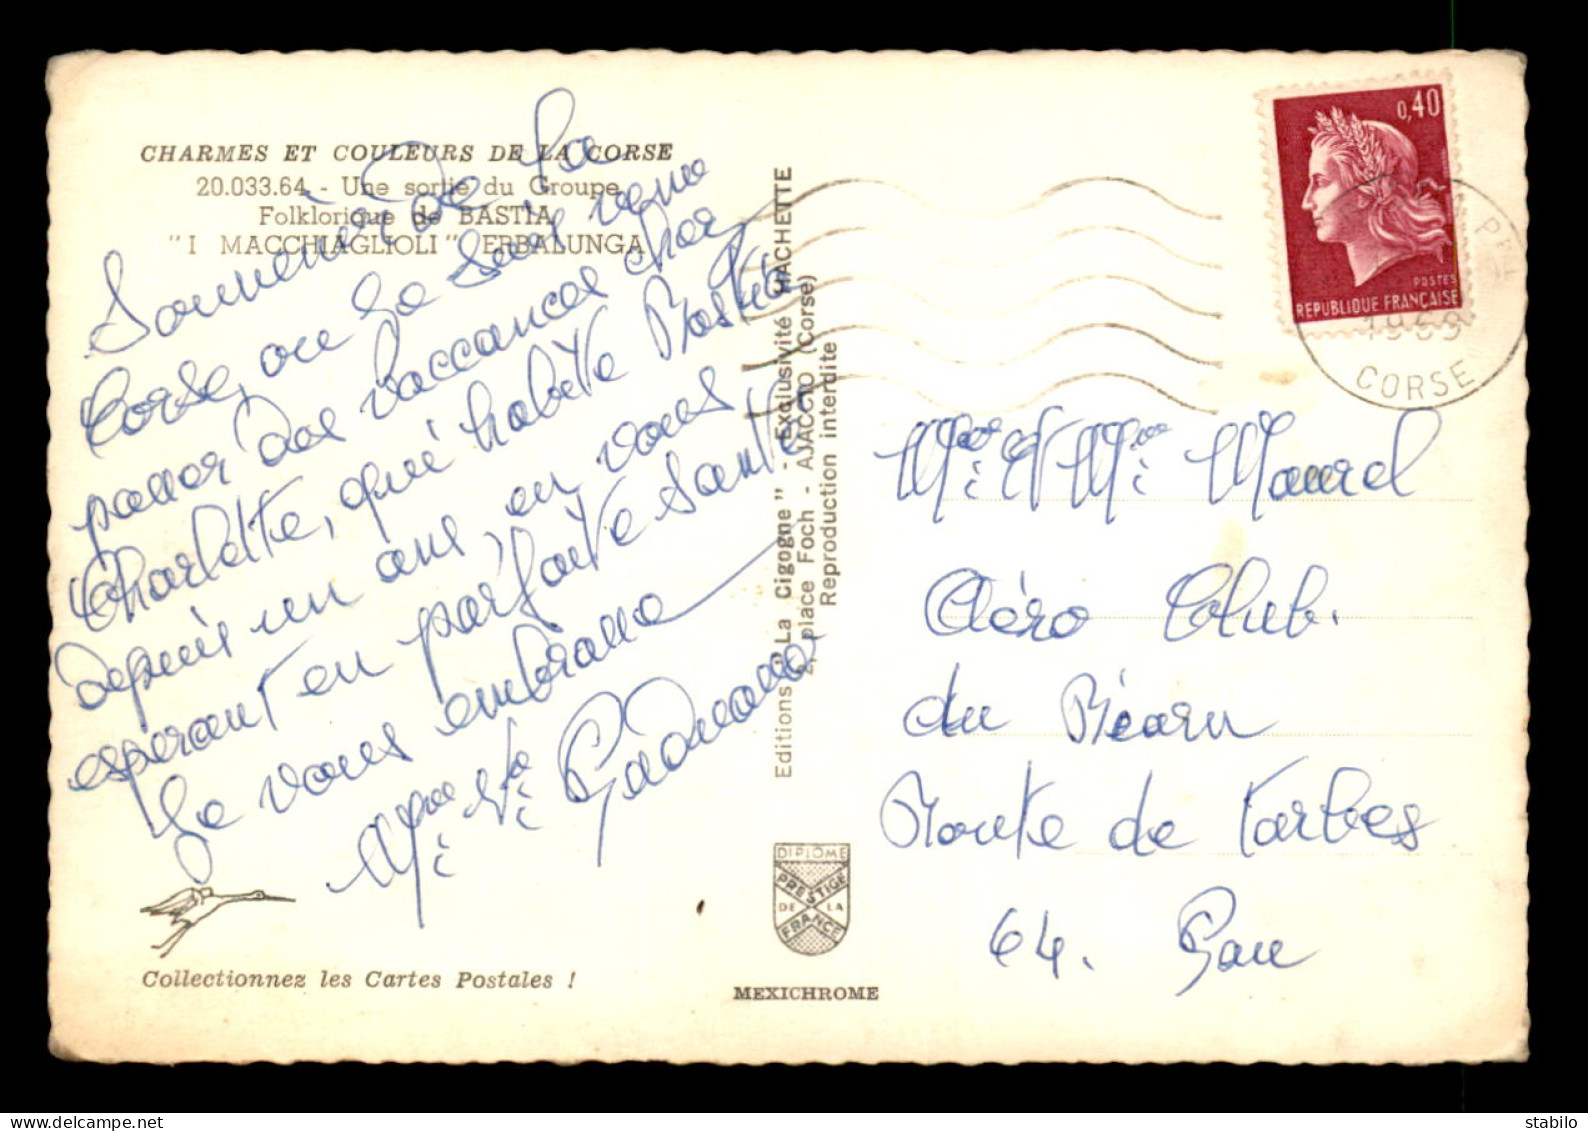 CHARMES ET COULEURS DE LA CORSE
20.033.64 - Une sortie du Groupe
Folklorique de BASTIA
"I MACCHIAGLIOLI" ERBALUNGA
Souvenir de la
Corse, ou Je suis venue
passer des vaccances chez
Charlotte, qui habite Bastia
depuis un ans, en vous
esperant en parfaite santée
Je vous embrasse
Mme Ve
Collectionnez les Cartes Postales !
Editions "La Cigogne" - Exclusivité HACHETTE
2, place Foch - AJACCIO (Corse)
Reproduction interdite
DIPLOME
PRESTIGE
DE LA
FRANCE
MEXICHROME
0,40
POSTES
REPUBLIQUE FRANÇAISE
1969
CORSE
Mr et Mme Maurel
Aéro Club.
du Béarn
Route de Tarbes
64. Pau
stabilo